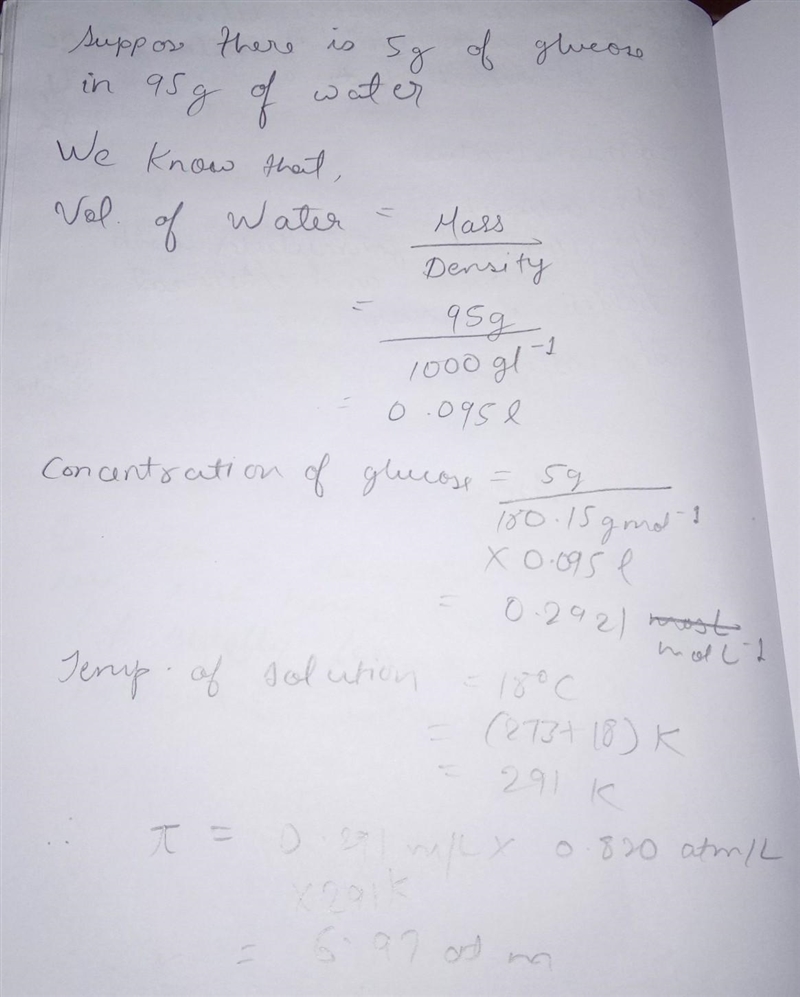 Suppose there is 5g of glucose
in 95g of water
We know that,
Vol. of Water = Mass
Density
= 95g
1000 gl⁻¹
= 0.095 l
Concentration of glucose = 5g
180.15 g mol⁻¹
× 0.095 l
= 0.2921
mol L⁻¹
Temp. of solution = 18°C
= (273+18) K
= 291 K
∴ π = 0.291 m/L × 0.820 atm/L
×291K
= 6.97 atm